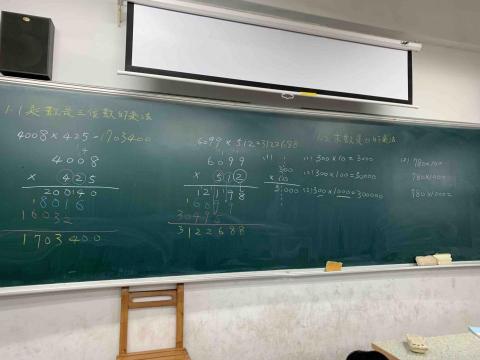 1-1 乘數是三位數的乘法
4008 × 425 = 1703400
4008
× 425
20040
8016
16032
1703400
6099 × 512 = 3122688
6099
× 512
12198
6099
30495
3122688
1-2 末數是0的乘法
(1)
300
× 10
3000
(1) 300×10=3000
(2) 300×100=30000
(3) 300×1000=300000
(2) 780×10=
780×100=
780×1000=